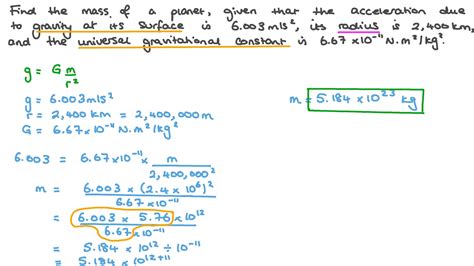 Find the mass of a planet, given that the acceleration due
to gravity at its surface is 6.003 m/s², its radius is 2,400 km,
and the universal gravitational constant is 6.67 × 10⁻¹¹ N.m²/kg².
g = G m/r²
g = 6.003 m/s²
r = 2,400 km = 2,400,000 m
G = 6.67 × 10⁻¹¹ N.m²/kg²
m = 5.184 × 10²³ kg
6.003 = 6.67 × 10⁻¹¹ × m/2,400,000²
m = 6.003 × (2.4 × 10⁶)²/6.67 × 10⁻¹¹
= 6.003 × 5.76 × 10¹²/6.67 × 10⁻¹¹
= 5.184 × 10¹² ÷ 10⁻¹¹
= 5.184 × 10¹²⁺¹¹